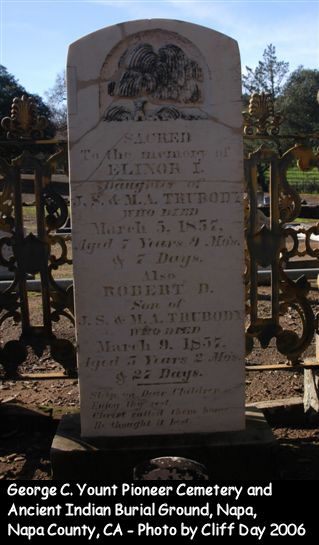 SACRED
To the memory of
ELINOR I.
Daughter of
J. S. & M. A. TRUBODY
WHO DIED
March 5, 1857,
Aged 7 Years 9 Mo's.
& 7 Days.
Also
ROBERT D.
Son of
J. S. & M. A. TRUBODY
WHO DIED
March 9, 1857.
Aged 5 Years 2 Mo's.
& 27 Days.
Sleep on Dear Children
Enjoy thy rest
Christ called them home
He thought it best
George C. Yount Pioneer Cemetery and
Ancient Indian Burial Ground, Napa,
Napa County, CA - Photo by Cliff Day 2006